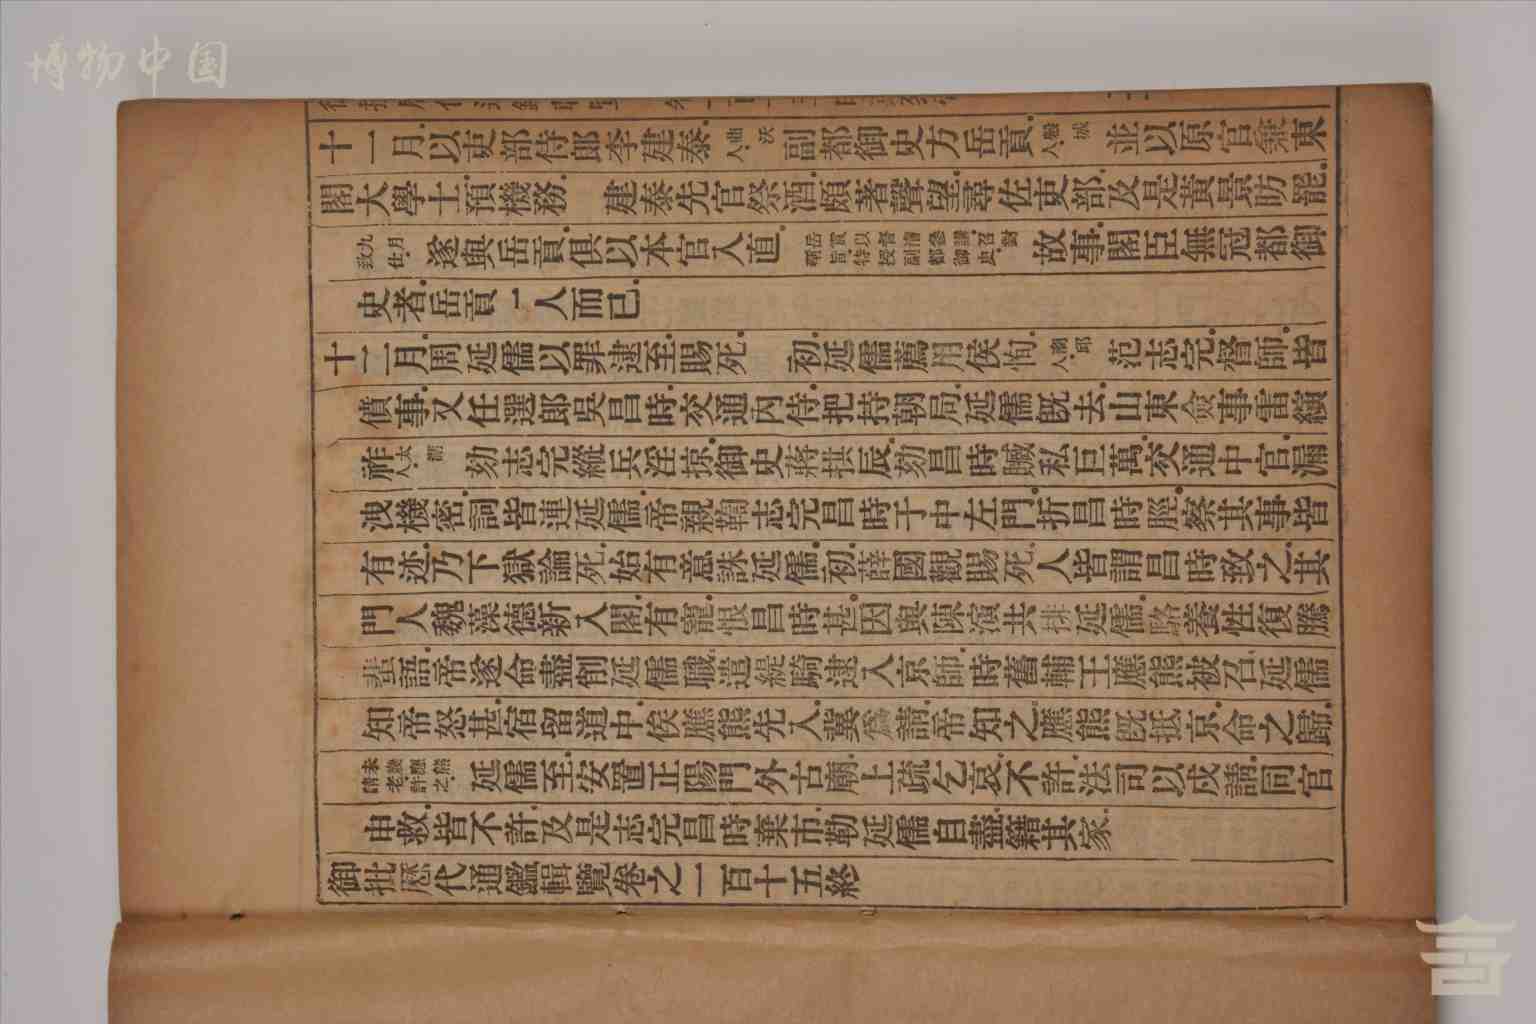 博物中国
十一月以吏部侍郎李建泰曲沃人副都御史方岳貢穀城人並以原官兼東
閣大學士預機務 建泰先官祭酒頗著聲望尋佐吏部及是黃景昉罷
九月致仕遂與岳貢俱以本官入直 故事閣臣無冠都御
史者岳貢一人而已
十二月周延儒以罪逮至賜死 初延儒薦用侯恂商邱人范志完督師皆
僨事又任選郎吳昌時交通內侍把持朝局延儒既去山東僉事雷縯
祚太湖人劾志完縱兵淫掠御史蔣拱辰劾昌時贓私巨萬交通中官漏
洩機密詞皆連延儒帝親鞫志完昌時于中左門折昌時脛察其事皆
有迹乃下獄論死始有意誅延儒初薛國觀賜死人皆謂昌時致之其
門人魏藻德新入閣有寵恨昌時甚因與陳演共排延儒駱養性復騰
蜚語帝遂命盡削延儒職遣緹騎逮入京師時舊輔王應熊被召延儒
知帝怒甚宿留道中俟應熊先入冀為請帝知之應熊既抵京命之歸
延儒至安置正陽門外古廟上疏乞哀不許法司以戍請同官
申救皆不許及是志完昌時棄市勒延儒自盡籍其家
御批歷代通鑑輯覽卷之一百十五終